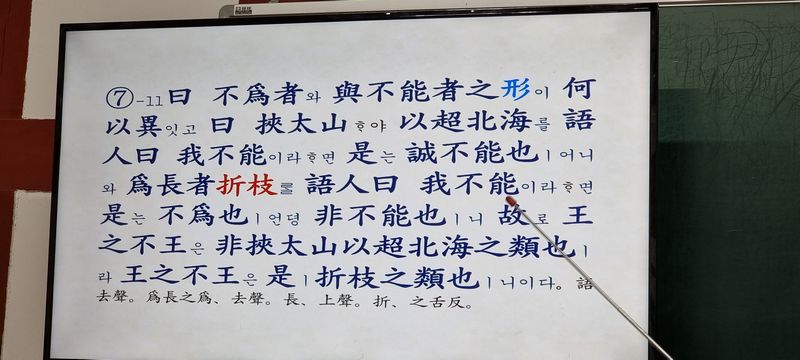 ⑦-11曰 不爲者와 與不能者之形이 何
以異잇고 曰 挾太山ᄒᆞ야 以超北海를 語
人曰 我不能이라ᄒᆞ면 是는 誠不能也ㅣ어니
와 爲長者折枝를 語人曰 我不能이라ᄒᆞ면
是는 不爲也ㅣ언뎡 非不能也ㅣ니 故로 王
之不王은 非挾太山以超北海之類也ㅣ
라 王之不王은 是ㅣ折枝之類也ㅣ니이다。語
去聲。爲長之爲、去聲。長、上聲。折、之舌反。